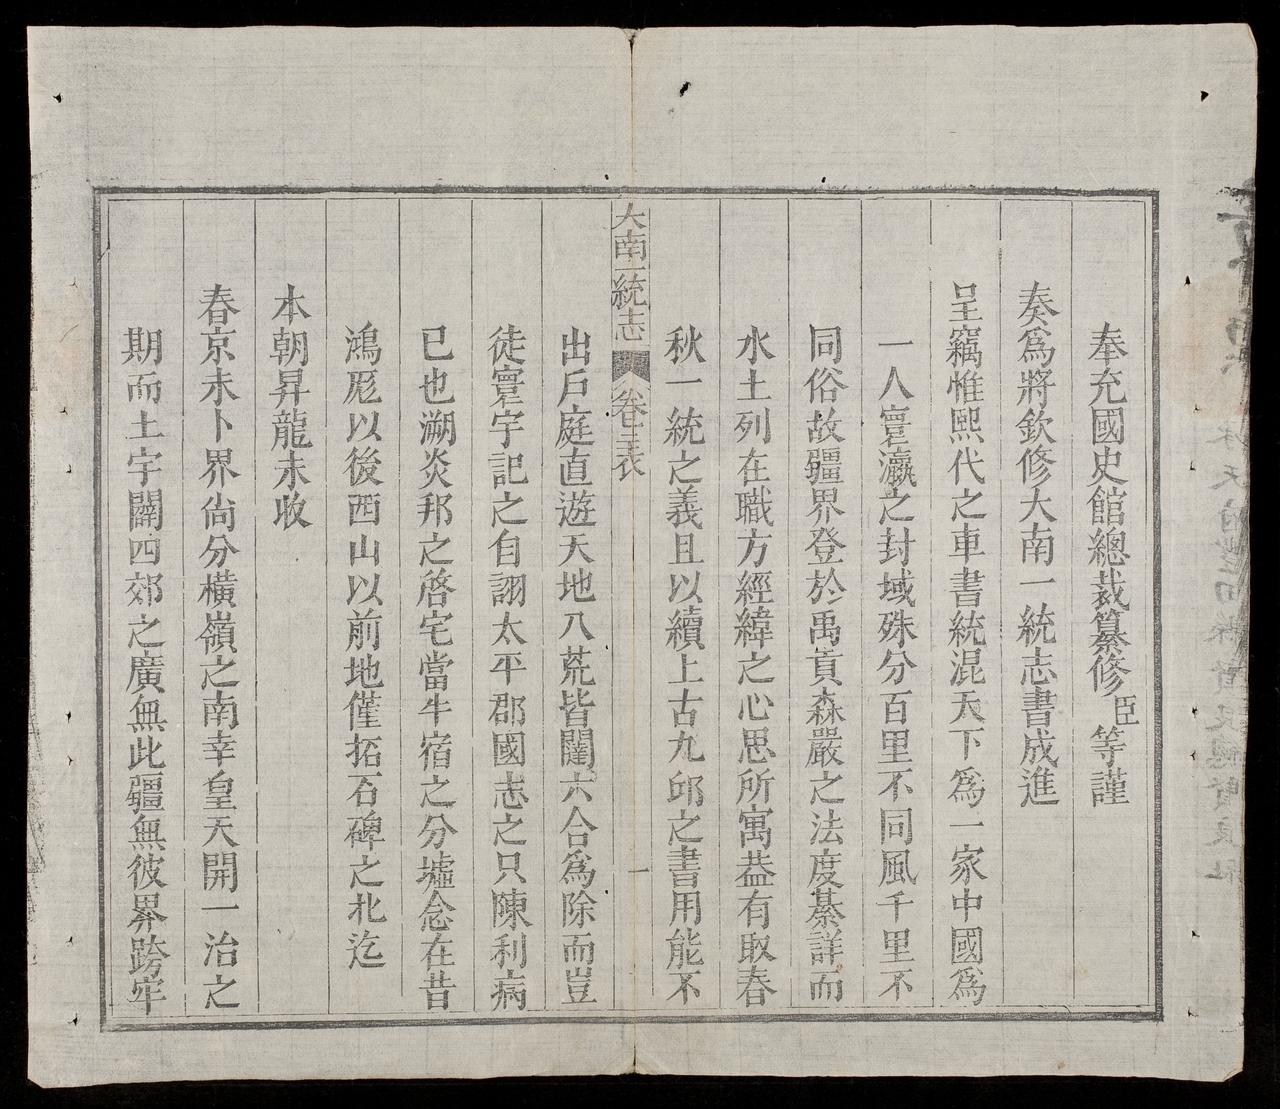 奉充國史館總裁纂修臣等謹
奏爲將欽修大南一統志書成進
呈竊惟熙代之車書統混天下爲一家中國爲
一人寰瀛之封域殊分百里不同風千里不
同俗故疆界登於禹貢森嚴之法度綦詳而
水土列在職方經緯之心思所寓益有取春
秋一統之義且以續上古九邱之書用能不
大南一統志 卷之表 一
出戶庭直遊天地八荒皆闥六合爲除而豈
徒寰宇記之自詡太平郡國志之只陳利病
已也溯炎邦之啓宅當牛宿之分墟念在昔
鴻厖以後西山以前地僅拓石碑之北迄
本朝昇龍未收
春京未卜界尙分橫嶺之南幸皇天開一治之
期而土宇闢四郊之廣無此疆無彼界跨牢